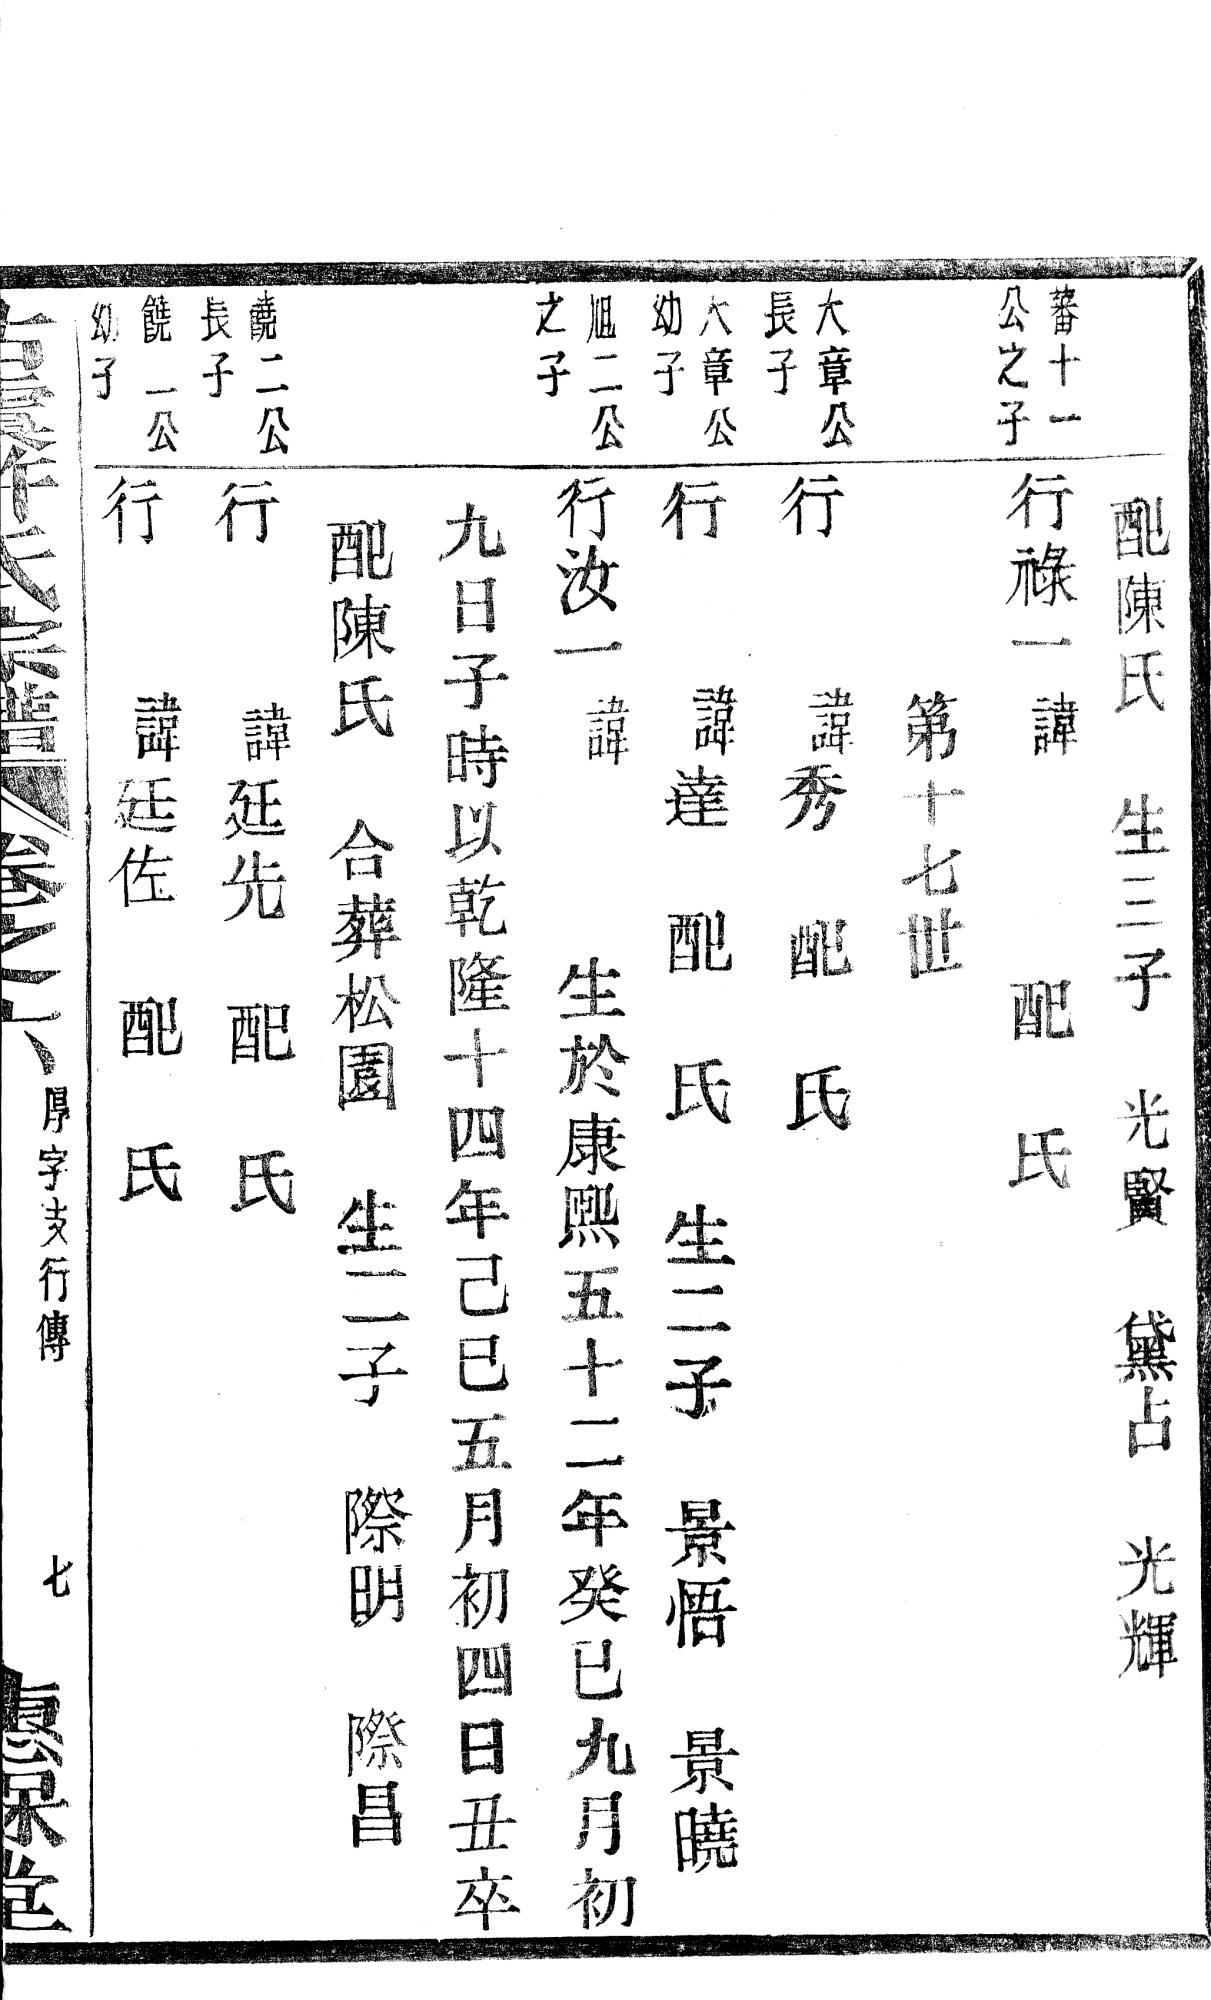 配陳氏 生三子 光賢 黛占 光輝
蕃十一
公之子
行祿一 諱 配 氏
第十七世
大章公
長子
行 諱秀 配 氏
大章公
幼子
行 諱達 配 氏 生二子 景悟 景曉
旭二公
之子
行汝一 諱 生於康熙五十二年癸巳九月初
九日子時以乾隆十四年己巳五月初四日丑卒
配陳氏 合葬松園 生二子 際明 際昌
饒二公
長子
行 諱廷先 配 氏
饒一公
幼子
行 諱廷佐 配 氏
氏宗譜 卷之六 厚字支行傳 七